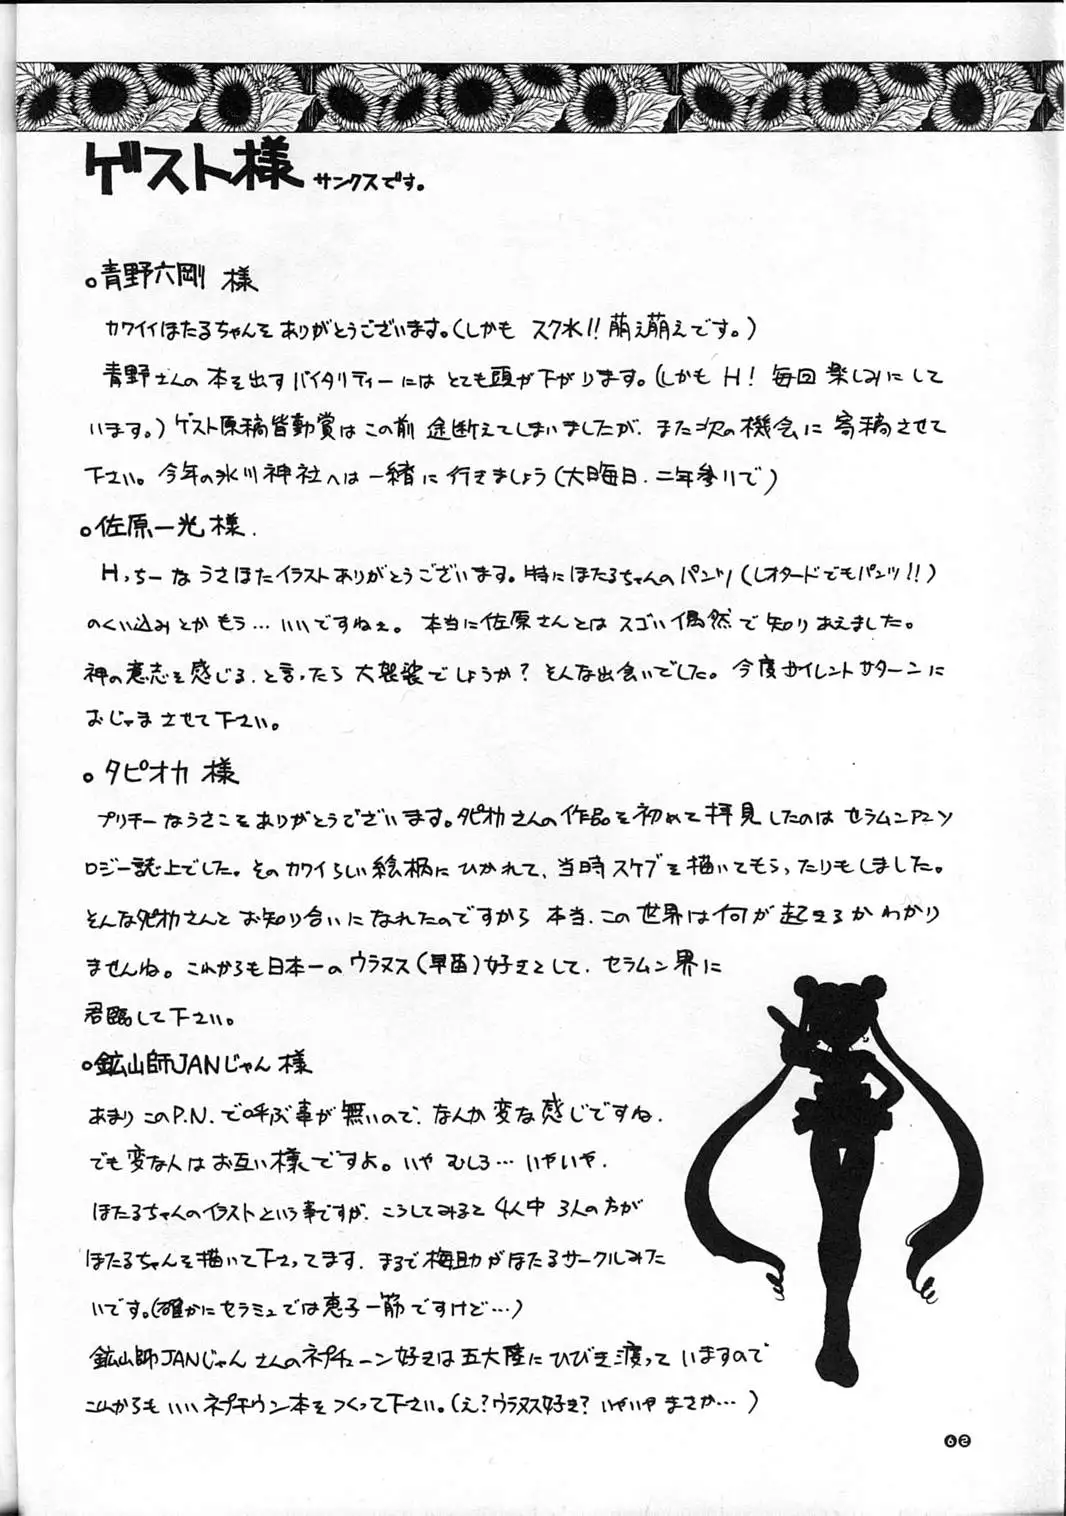 ゲスト様 サンクスです。
。青野六剛 様
カワイイほたるちゃんをありがとうございます。(しかも スク水!! 萌え萌えです。)
青野さんの 本を出す バイタリティーには とても頭が下がります。(しかも H! 毎回 楽しみにして
います。) ゲスト原稿皆勤賞は この前 途断えてしまいましたが、また次の機会に 寄稿させて
下さい。今年の氷川神社へは 一緒に 行きましょう (大晦日、二年参りで)
。佐原一光 様.
H、ちーな うさほたイラストありがとうございます。特に ほたるちゃんのパンツ (レオタードでもパンツ!!)
のくい込みとか もう… いいですねぇ。 本当に佐原さんとは スゴい偶然で 知りあえました。
神の意志を感じる、と言ったら 大袈裟でしょうか? そんな出会いでした。今度サイレントサターンに
おじゃまさせて下さい。
。タピオカ 様
プリチーなうさこそありがとうございます。タピオカさんの作品を初めて拝見したのは セラムンアンソ
ロジー誌上でした。そのカワイらしい絵柄に ひかれて、当時スケブを描いてもらったりもしました。
そんなタピオカさんと お知り合いになれたのですから 本当、この世界は何が起きるかわかり
ませんね。これからも日本一の ウラヌス (早苗) 好きとして、セラムン界に
君臨して下さい。
。鉱山師JANじゃん 様
あまりこのP.N.で呼ぶ事が無いので、なんか変な感じですね.
でも変な人は お互い様ですよ。いや むしろ… いやいや.
ほたるちゃんのイラストという事ですが、こうしてみると 4人中 3人の方が
ほたるちゃんを描いて下さってます. まるで梅助がほたるサークルみた
いです。(確かにセラミュでは 恵子一筋ですけど…)
鉱山師JANじゃん さんのネプチューン好きは 五大陸にひびき渡って いますので
これからも いいネプチウン本をつくって下さい。(え? ウラヌス好き? いやいや まさか…)
62